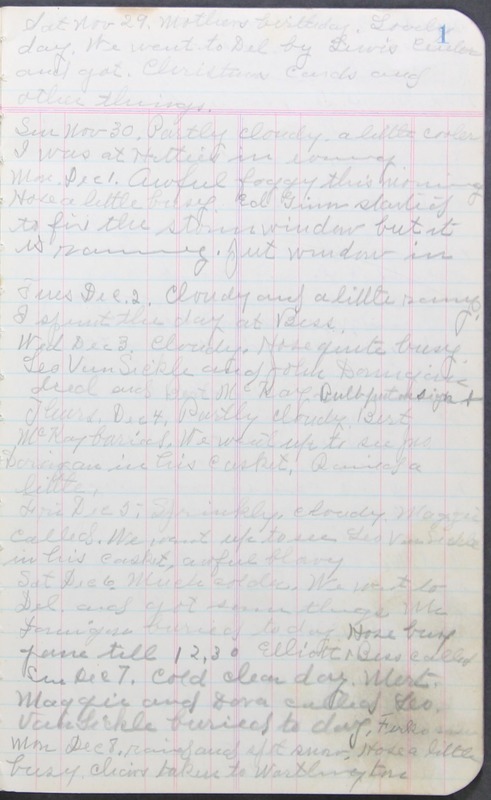 1
Sat Nov 29. Mothers birthday. Lovely
day. We went to Del by Lewis Center
and got. Christmas Cards and
other things.
Sun Nov 30. Partly cloudy. a little cooler
I was at Hatties in evening
Mon. Dec 1. Awful foggy this morning
Hose a little busy. Ed started
to fix the storm window but it
is raining. Put window in
Tues Dec. 2. Cloudy and a little rainy.
I spent the day at Bess.
Wed Dec 3. Cloudy. Hose quite busy.
Leo VanSickle and John
died and Bert McKay.
Thurs. Dec 4. Partly cloudy. Bert
McKay buried. We went up to see
in his casket. Rained a
little.
Dec 5. Sprinkly. cloudy. Maggie
called. We went up to see Leo VanSickle
in his casket, awful
Sat Dec 6 Much colder. We went to
Del. and got some things. Mr
buried today. Hose busy
till 12,30 Elliott & Bess called
Sun Dec 7. Cold clear day. Mert.
Maggie and Dora called. Leo.
VanSickle buried to day.
Mon Dec 8. rain and snow. Hose a little
busy. chairs taken to Worthington